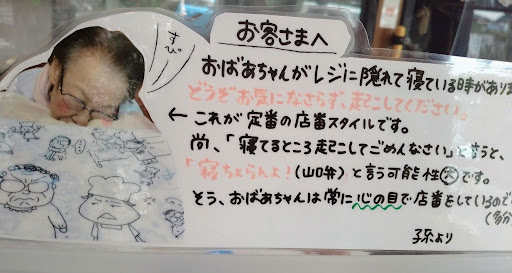 すぴー
お客さまへ
おばあちゃんがレジに隠れて寝ている時がありま
どうぞお気になさらず、起こしてください。
← これが定番の店番スタイルです。
尚、「寝てるところ起こしてごめんなさい」と言うと、
「寝ちょらんよ!(山口弁)と言う可能性大です。
そう、おばあちゃんは常に心の目で店番をしているので
(多分
孫より